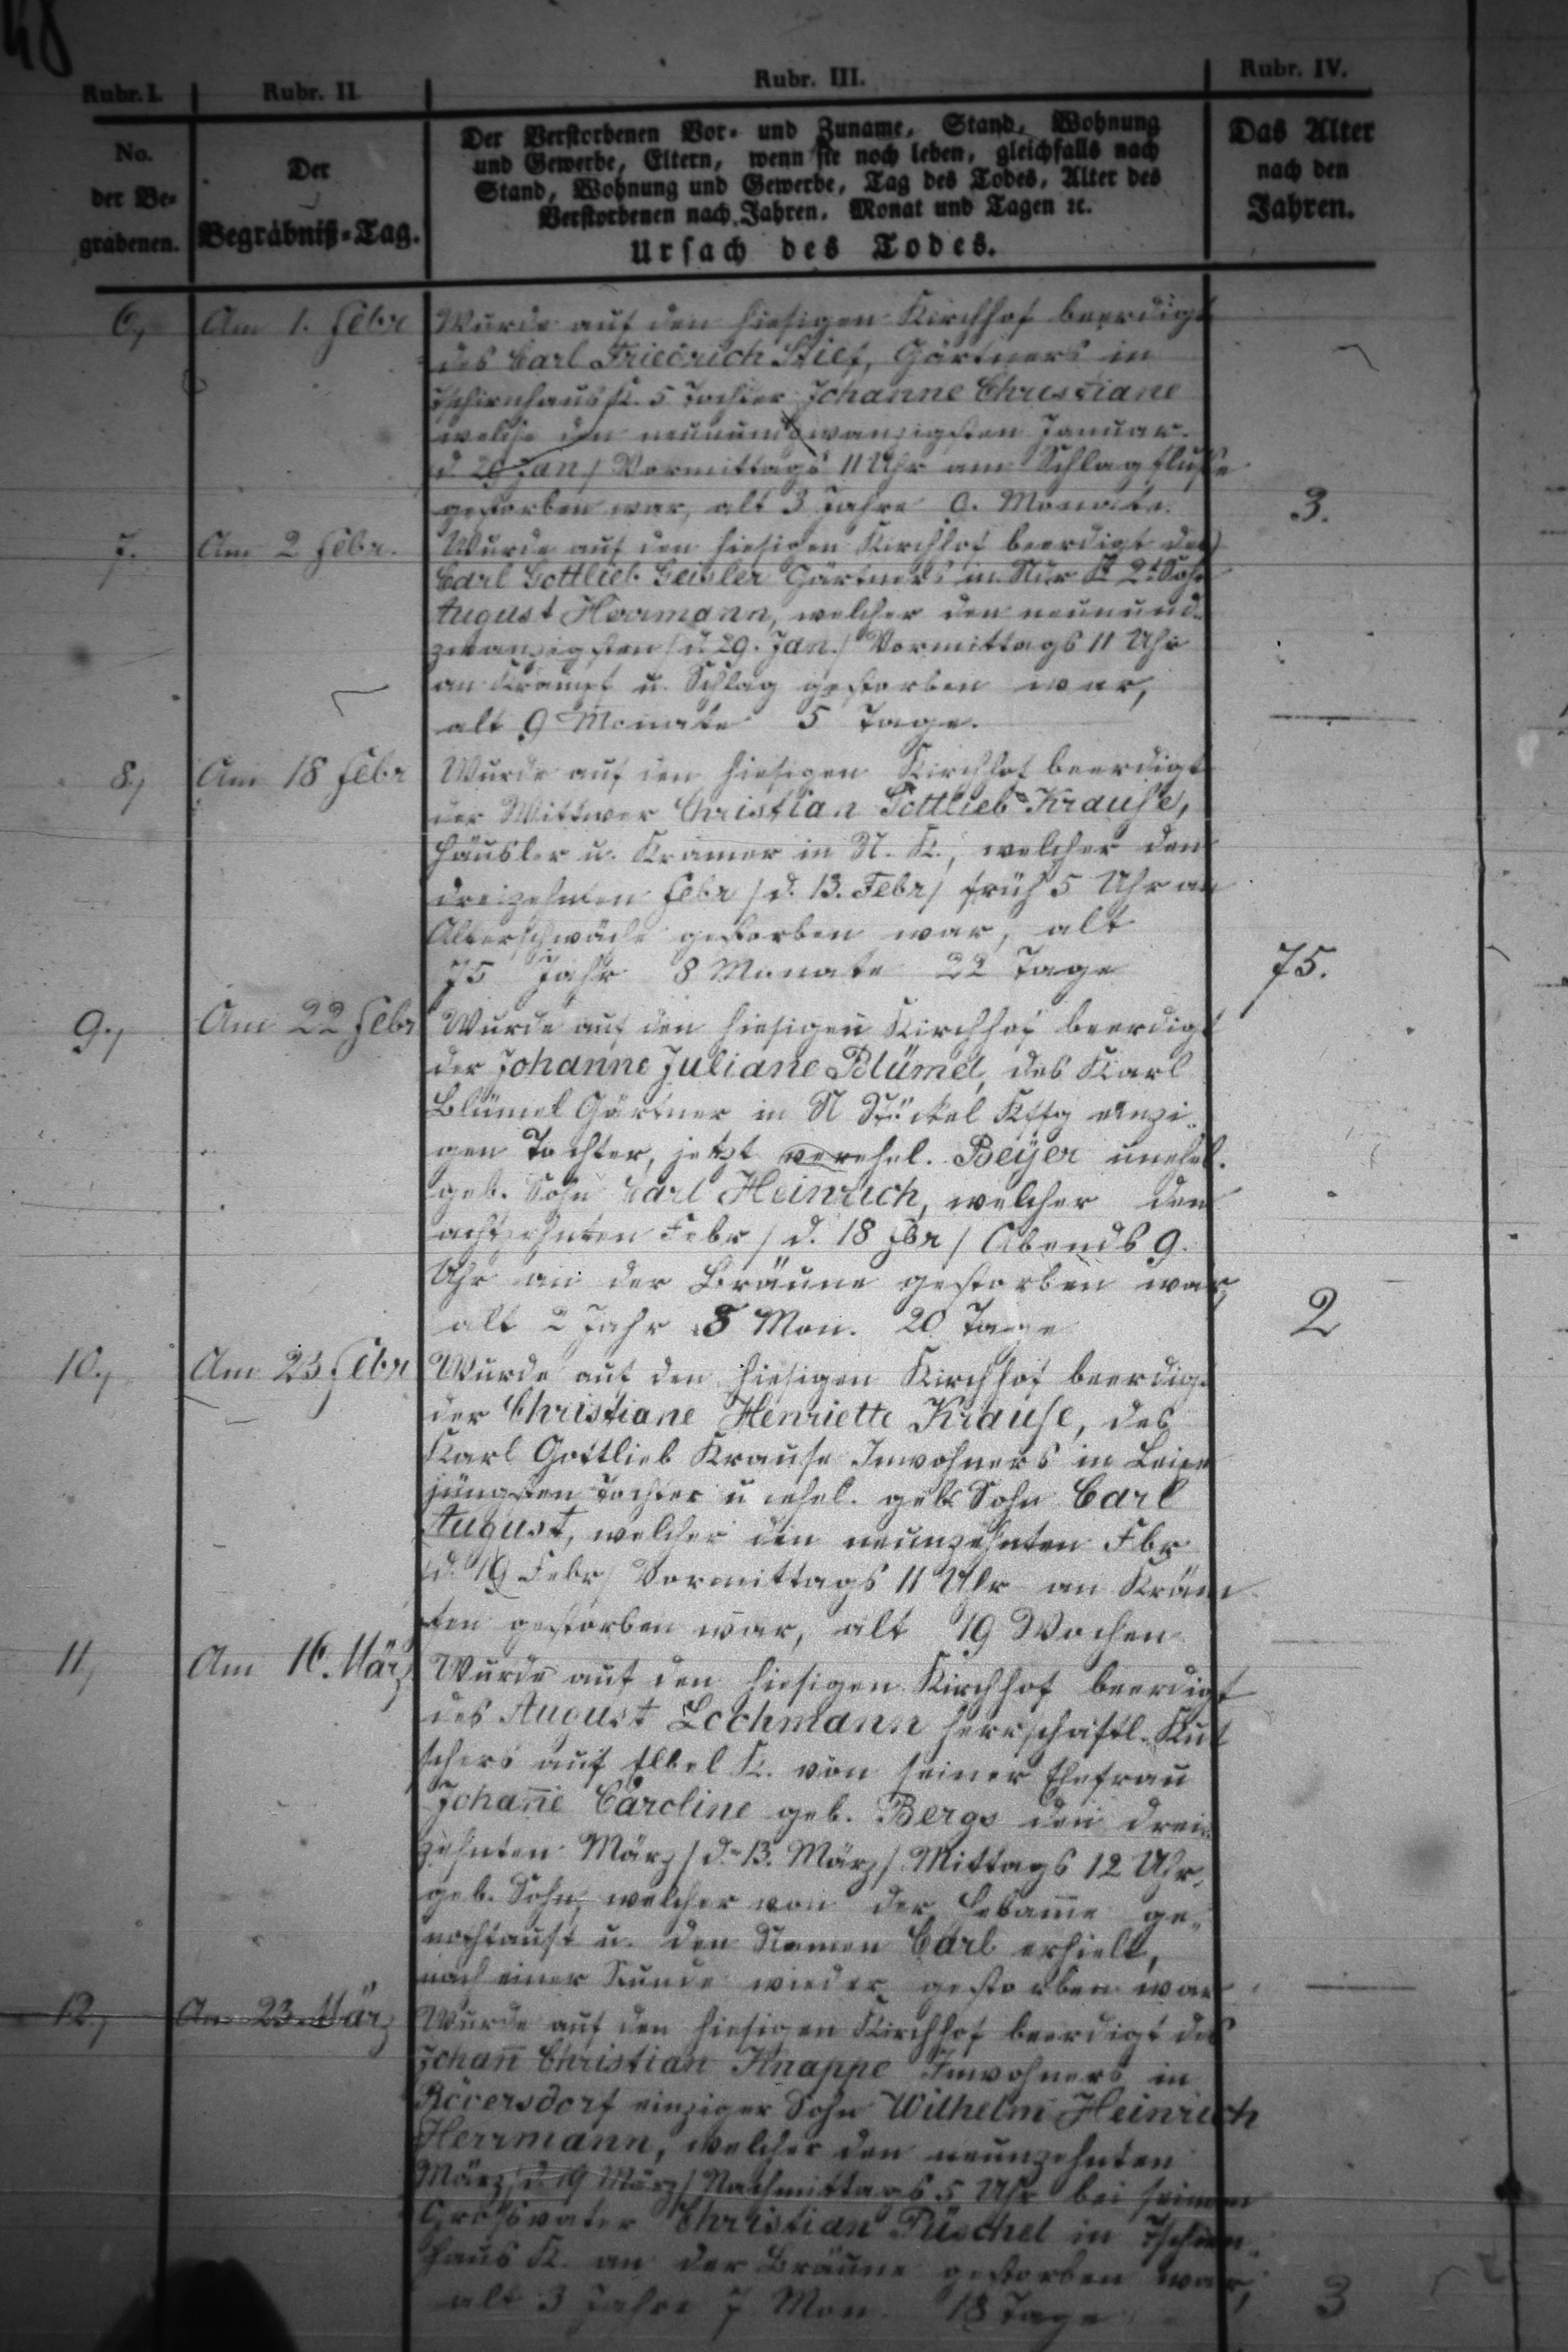 48
Rubr. I. Rubr. II. Rubr. III. Rubr. IV.
No. der Be-grabenen.
Der Begräbniß-Tag.
Der Verstorbenen Vor- und Zuname, Stand, Wohnung
und Gewerbe, Eltern, wenn sie noch leben, gleichfalls nach
Stand, Wohnung und Gewerbe, Tag des Todes, Alter des
Verstorbenen nach Jahren, Monat und Tagen ꝛc.
Ursach des Todes.
Das Alter nach den Jahren.
6, Am 1. Febr Wurde auf den hiesigen Kirchhof beerdigt
des Carl Friedrich Stief, Gärtners in
Tschirnhaus K. 5 Tochter Johanne Christiane
welche den neunundzwanzigsten Januar
/d 29 Jan/ Vormittags 11 Uhr am Schlagflusse
gestorben war, alt 3 Jahre 9. Monate. 3.
7. Am 2 Febr. Wurde auf den hiesigen Kirchhof beerdigt des
Carl Gottlieb Geisler Gärtners in 2t Sohn
August Herrmann, welcher den neunund-
zwanzigsten /d 29. Jan./ Vormittags 11 Uhr
an Krampf u. Schlag gestorben war,
alt 9 Monate 5 Tage. —
8, Am 18 Febr Wurde auf den hiesigen Kirchhof beerdigt
der Wittwer Christian Gottlieb Krause,
Häusler u. Kramer in N. K., welcher den
dreizehnten Febr /d. 13. Febr/ früh 5 Uhr an
Alterschwäche gestorben war, alt
75 Jahr 8 Monate 22 Tage 75.
9., Am 22 Febr Wurde auf den hiesigen Kirchhof beerdigt
der Johanne Juliane Blümel, des Karl
Blümel Gärtner in N Stöckel Kffg einzi-
gen Tochter, jetzt verehel. Beÿer unehel.
geb. Sohn Carl Heinrich, welcher den
achtzehnten Febr /d. 18 Fbr/ Abends 9.
Uhr an der Bräune gestorben war,
alt 2 Jahr 8 Mon. 20 Tage 2
10., Am 23 Febr Wurde auf den hiesigen Kirchhof beerdigt
der Christiane Henriette Krause, des
Karl Gottlieb Krause Inwohners in Leipe
jüngsten Tochter unehel. geb. Sohn Carl
August, welcher den neunzehnten Fbr
/d. 19 Febr/ Vormittags 11 Uhr an Kräm-
fen gestorben war, alt 19 Wochen —
11, Am 16. März Wurde auf den hiesigen Kirchhof beerdigt
des August Lochmann herrschaftl. Kut
schers auf Elbel K. von seiner Ehefrau
Johañe Caroline geb. Bergs den drei-
zehnten März /d. 13. März/ Mittags 12 Uhr
geb. Sohn, welcher von der Hebam̄e ge-
nothtauft u. den Namen Carl erhielt,
nach einer Stunde wieder gestorben war —
12, Am 23. März Wurde auf den hiesigen Kirchhof beerdigt des
Johañ Christian Knappe Inwohners in
Röversdorf einziger Sohn Wilhelm Heinrich
Herrmann, welcher den neunzehnten
März /d. 19 März/ Nachmittags 5 Uhr bei seinem
Grosvater Christian Püschel in Tschirn-
haus K. an der Bräune gestorben war,
alt 3 Jahre 7 Mon. 18 Tage 3